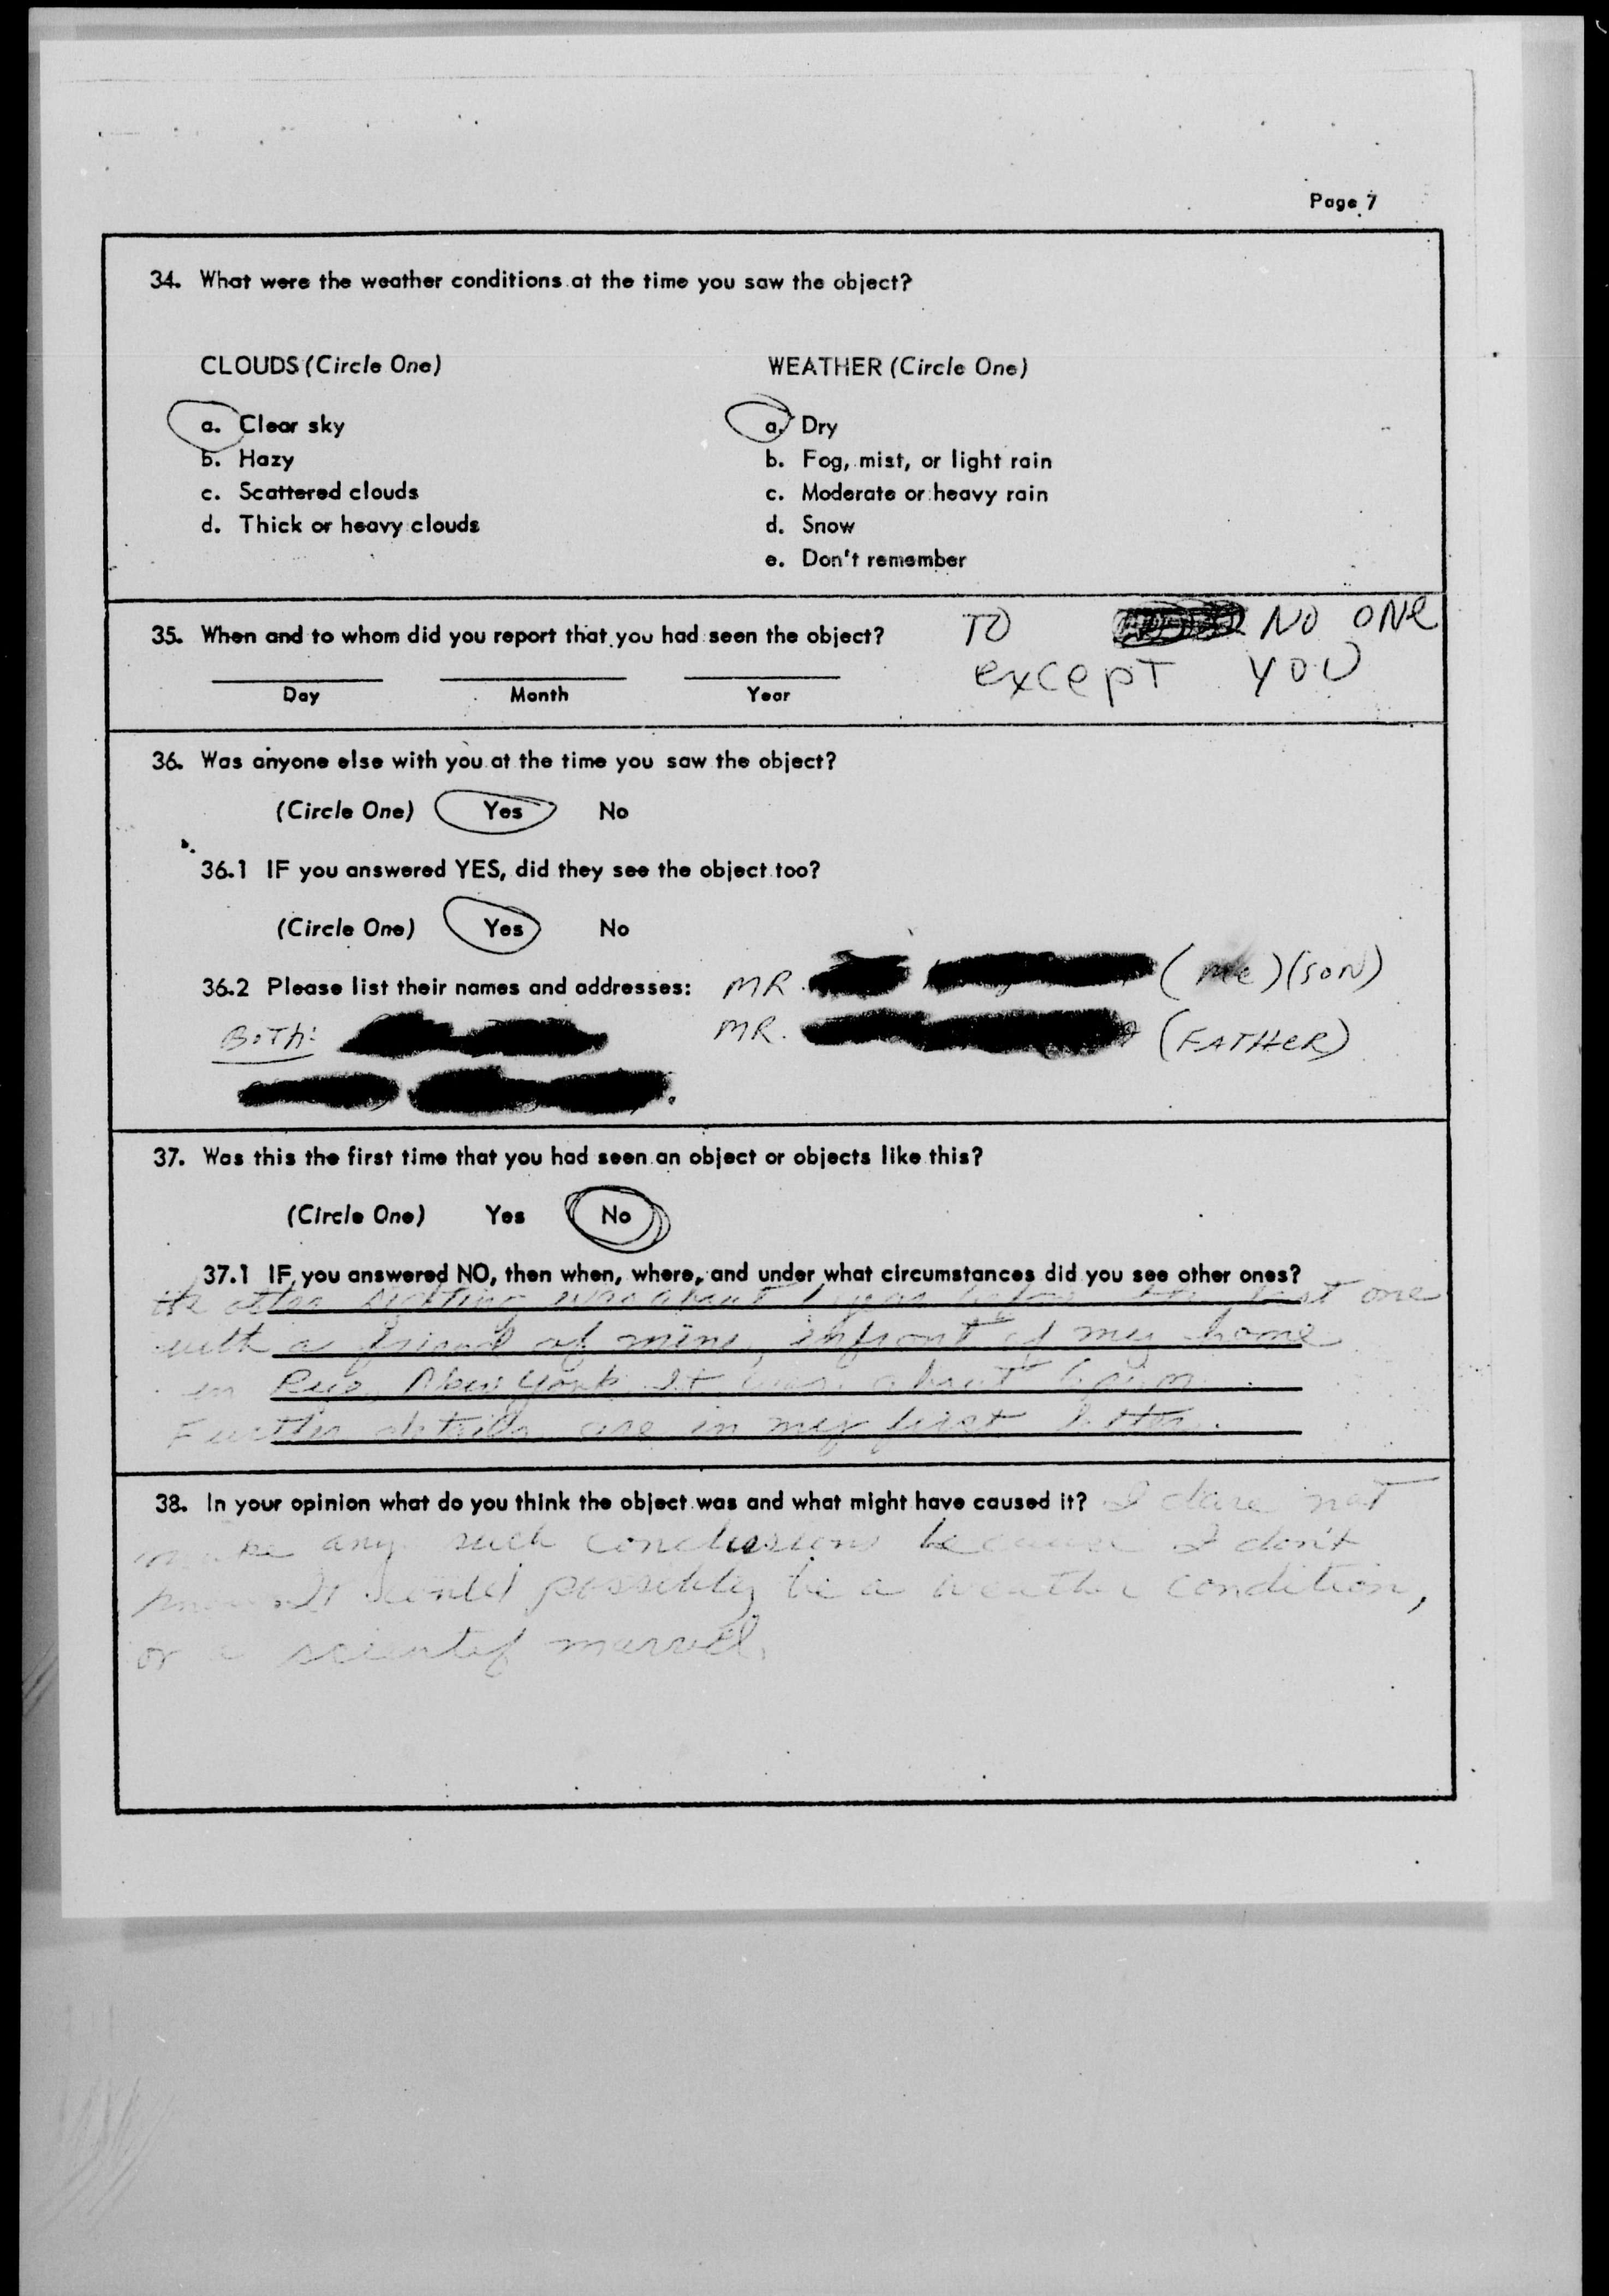 Page 7
34. What were the weather conditions at the time you saw the object?
CLOUDS (Circle One)
a. Clear sky
b. Hazy
c. Scattered clouds
d. Thick or heavy clouds
WEATHER (Circle One)
a. Dry
b. Fog, mist, or light rain
c. Moderate or heavy rain
d. Snow
e. Don't remember
35. When and to whom did you report that you had seen the object?
Day Month Year
TO NO ONE
EXCEPT YOU
36. Was anyone else with you at the time you saw the object?
(Circle One) Yes No
36.1 IF you answered YES, did they see the object too?
(Circle One) Yes No
36.2 Please list their names and addresses: MR. (me) (SON)
BOTH: MR. (FATHER)
37. Was this the first time that you had seen an object or objects like this?
(Circle One) Yes No
37.1 IF you answered NO, then when, where, and under what circumstances did you see other ones?
the other sighting was about 1 year before the last one
with a friend of mine, infront of my home
in Rye, New York. It was about 6 p.m.
Further details are in my first letter.
38. In your opinion what do you think the object was and what might have caused it? I dare not
make any such conclusions because I don't
know. It could possibly be a weather condition,
or a scientif marvel.